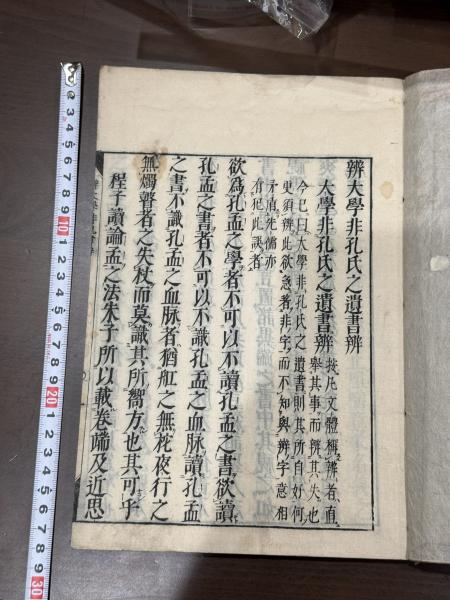 辨大學非孔氏之遺書辨
大學非孔氏之遺書辨
按凡文體稱辨者直
舉其事而辨其失也
今已曰大學非孔氏之遺書則其所自好何
更須辨此欲急著非字而不知與辨字意相
矛盾先儒亦
有犯此誤者
欲爲孔孟之學者不可以不讀孔孟之書欲讀
孔孟之書者不可以不識孔孟之血脉讀孔孟
之書不識孔孟之血脉者猶舡之無柁夜行之
無燭瞽者之失杖而莫識其所嚮方也其可乎
程子讀論孟之法朱子所以載卷端及近思
3 4 5 6 7 8 9 10 1 2 3 4 5 6 7 8 9 20 1 2 3 4 5 6 7 8 9 30